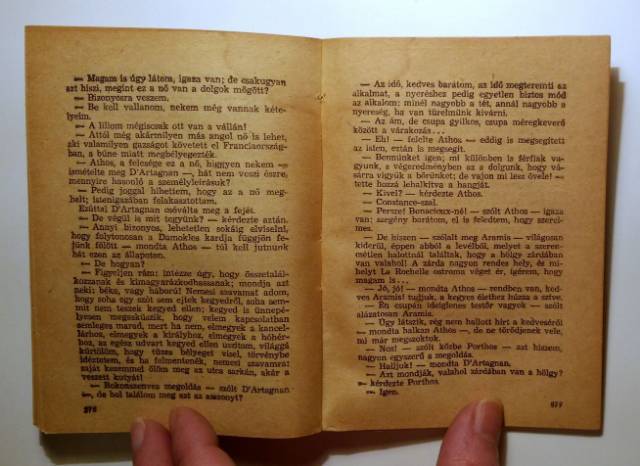 — Magam is úgy látom, igaza van; de csakugyan
azt hiszi, megint ez a nő van a dolgok mögött?
— Bizonyosra veszem.
— Be kell vallanom, nekem még vannak kéte-
lyeim.
— A liliom mégiscsak ott van a vállán!
— Attól még akármilyen más angol nő is lehet,
aki valamilyen gazságot követett el Franciaország-
ban, a bűne miatt megbélyegezték.
— Athos, a felesége ez a nő, higgyen nekem —
ismételte meg D'Artagnan —, hát nem veszi észre,
mennyire hasonló a személyleírásuk?
— Pedig joggal hihetem, hogy az a nő meg-
halt; istenigazában felakasztottam.
Ezúttal D'Artagnan csóválta meg a fejét.
— De végül is mit tegyünk? — kérdezte aztán.
— Annyi bizonyos, lehetetlen sokáig elviselni,
hogy folytonosan a Damokles kardja függjön fe-
jünk fölött — mondta Athos — túl kell jutnunk
hát ezen az állapoton.
— De hogyan?
— Figyeljen rám: intézze úgy, hogy összetalál-
kozzanak és kimagyarázkodhassanak; mondja azt
neki: béke, vagy háború! Nemesi szavamat adom,
hogy soha egy szót sem ejtek kegyedről, soha sem-
mit nem teszek kegyed ellen; kegyed is ünnepé-
lyesen megesküszik, hogy velem kapcsolatban
semleges marad, mert ha nem, elmegyek a kancel-
lárhoz, elmegyek a királyhoz, elmegyek a hóhér-
hoz, az egész udvart kegyed ellen uszítom, világgá
kürtölöm, hogy tüzes bélyeget visel, törvénybe
idéztetem, és ha felmentenék, nemesi szavamra:
saját kezemmel ölöm meg az utca sarkán, akár a
veszett kutyát!
— Rokonszenves megoldás — szólt D'Artagnan
—, de hol találom meg azt az asszonyt?
276
— Az idő, kedves barátom, az idő megteremti az
alkalmat, a nyeréshez pedig egyetlen biztos mód
az alkalom: minél nagyobb a tét, annál nagyobb a
nyereség, ha van türelmünk kivárni.
— Az ám, de csupa gyilkos, csupa méregkeverő
között a várakozás...
— Eh! — felelte Athos — eddig is megsegített
az isten, eztán is megsegít.
— Bennünket igen; mi különben is férfiak va-
gyunk, s végeredményben az a dolgunk, hogy vá-
sárra vigyük a bőrünket; de vajon mi lesz ővele! —
tette hozzá lehalkítva a hangját.
— Kivel? — kérdezte Athos.
— Constance-szal.
— Persze! Bonacieux-né! — szólt Athos — igaza
van; szegény barátom, el is feledtem, hogy szerel-
mes.
— De hiszen — szólalt meg Aramis — világosan
kiderül, éppen abból a levélből, melyet a szeren-
csétlen halottnál találtak, hogy a hölgy zárdában
van valahol! A zárda nagyon rendes hely, és mi-
helyt La Rochelle ostroma véget ér, ígérem, hogy
magam is...
— Jó, jó! — mondta Athos — rendben van, ked-
ves Aramis! tudjuk, a kegyes élethez húzza a szíve.
— Én csupán ideiglenes testőr vagyok — szólt
alázatosan Aramis.
— Úgy látszik, rég nem hallott hírt a kedveséről
— mondta halkan Athos —, de ne törődjenek vele,
mi már megszoktok.
— Nos! — szólt közbe Porthos — azt hiszem,
nagyon egyszerű a megoldás.
— Halljuk! — mondta D'Artagnan.
— Azt mondják, valahol zárdában van a hölgy?
— kérdezte Porthos.
— Igen.
277